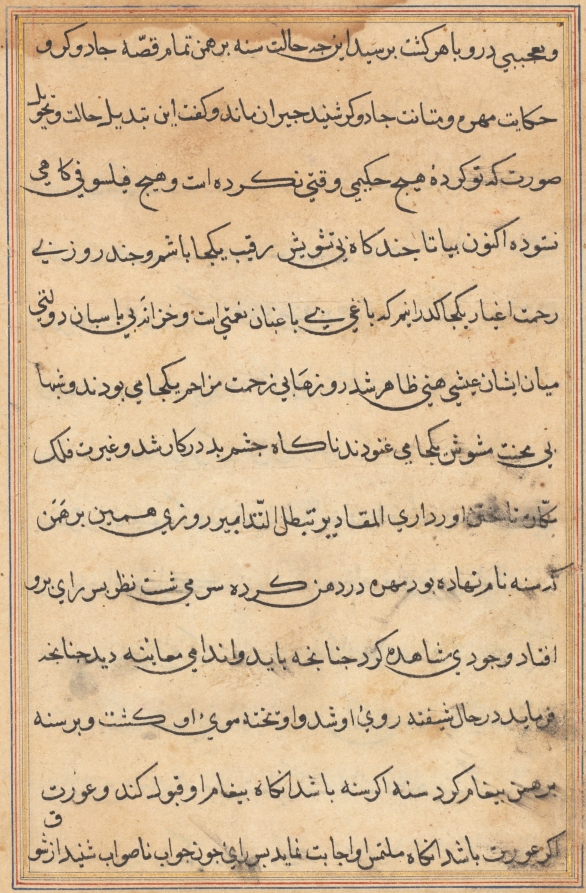 و تعجبی درو باهر گشت پرسید این چه حالت سنه برهمن تمام قصّه جادوگر و
حکایت مهره و متانت جادوگر شنید حیران ماند و گفت این تبدیل حالت و تحویل
صورت که تو کردهٔ هیچ حکیمی وقتی نکرده است و هیچ فیلسوفی گاهی
ننموده اکنون بیا تا چند گاه بی تشویش رقیب یکجا باشم و چند روز بی
زحمت اغیار یکجا گذرانیم که باغی بی باغبان نعمتی است و خزانهٔ بی پاسبان دولتی
میان ایشان عیشی هنی ظاهر شد روزها بی زحمت مزاحم یکجا می بودند و شبها
بی محنت مشوش یکجا می غنودند ناگاه چشم بد در کار شد و غیرت فلک
اورد اری المقادیر تبطل التدابیر روزی همین برهمن
که سنه نام نهاده بود مهره در دهن کرده سر می شست نظر پسر رای برو
افتاد وجودی مشاهده کرد چنانچه باید و اندامی معاینه دید چنانچه
فرماید در حال شیفته روی او شد و اوتخته موی او گشت و بر سنه
برهمن پیغام کرد سنه اگر سنه باشد آنگاه پیغام او قبول کند و عورت
اگر عورت باشد آنگاه ملتمس او اجابت نماید پسر رای چون جواب ناصواب شنید از شو
ق